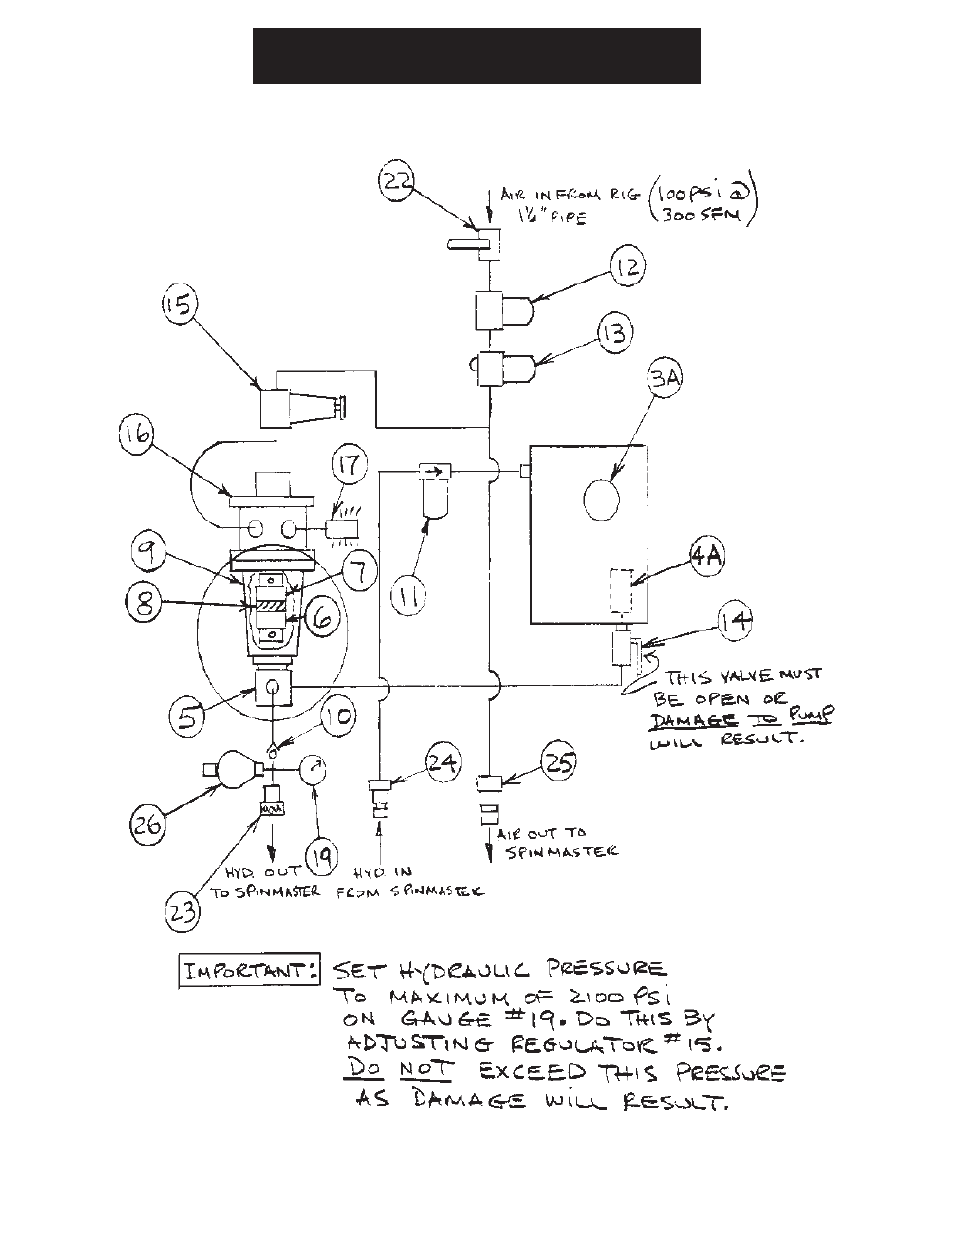 22
AIR IN FROM RIG (100 PSI @
1½" PIPE 300 SFM)
12
15
13
3A
16
17
9
7
4A
8
6
11
14
THIS VALVE MUST
BE OPEN OR
DAMAGE TO PUMP
WILL RESULT.
5
10
24
25
26
19
AIR OUT TO
SPINMASTER
HYD. OUT
TO SPINMASTER
HYD. IN
FROM SPINMASTER
23
IMPORTANT:
SET HYDRAULIC PRESSURE
TO MAXIMUM OF 2100 PSI
ON GAUGE #19. DO THIS BY
ADJUSTING REGULATOR #15.
DO NOT EXCEED THIS PRESSURE
AS DAMAGE WILL RESULT.